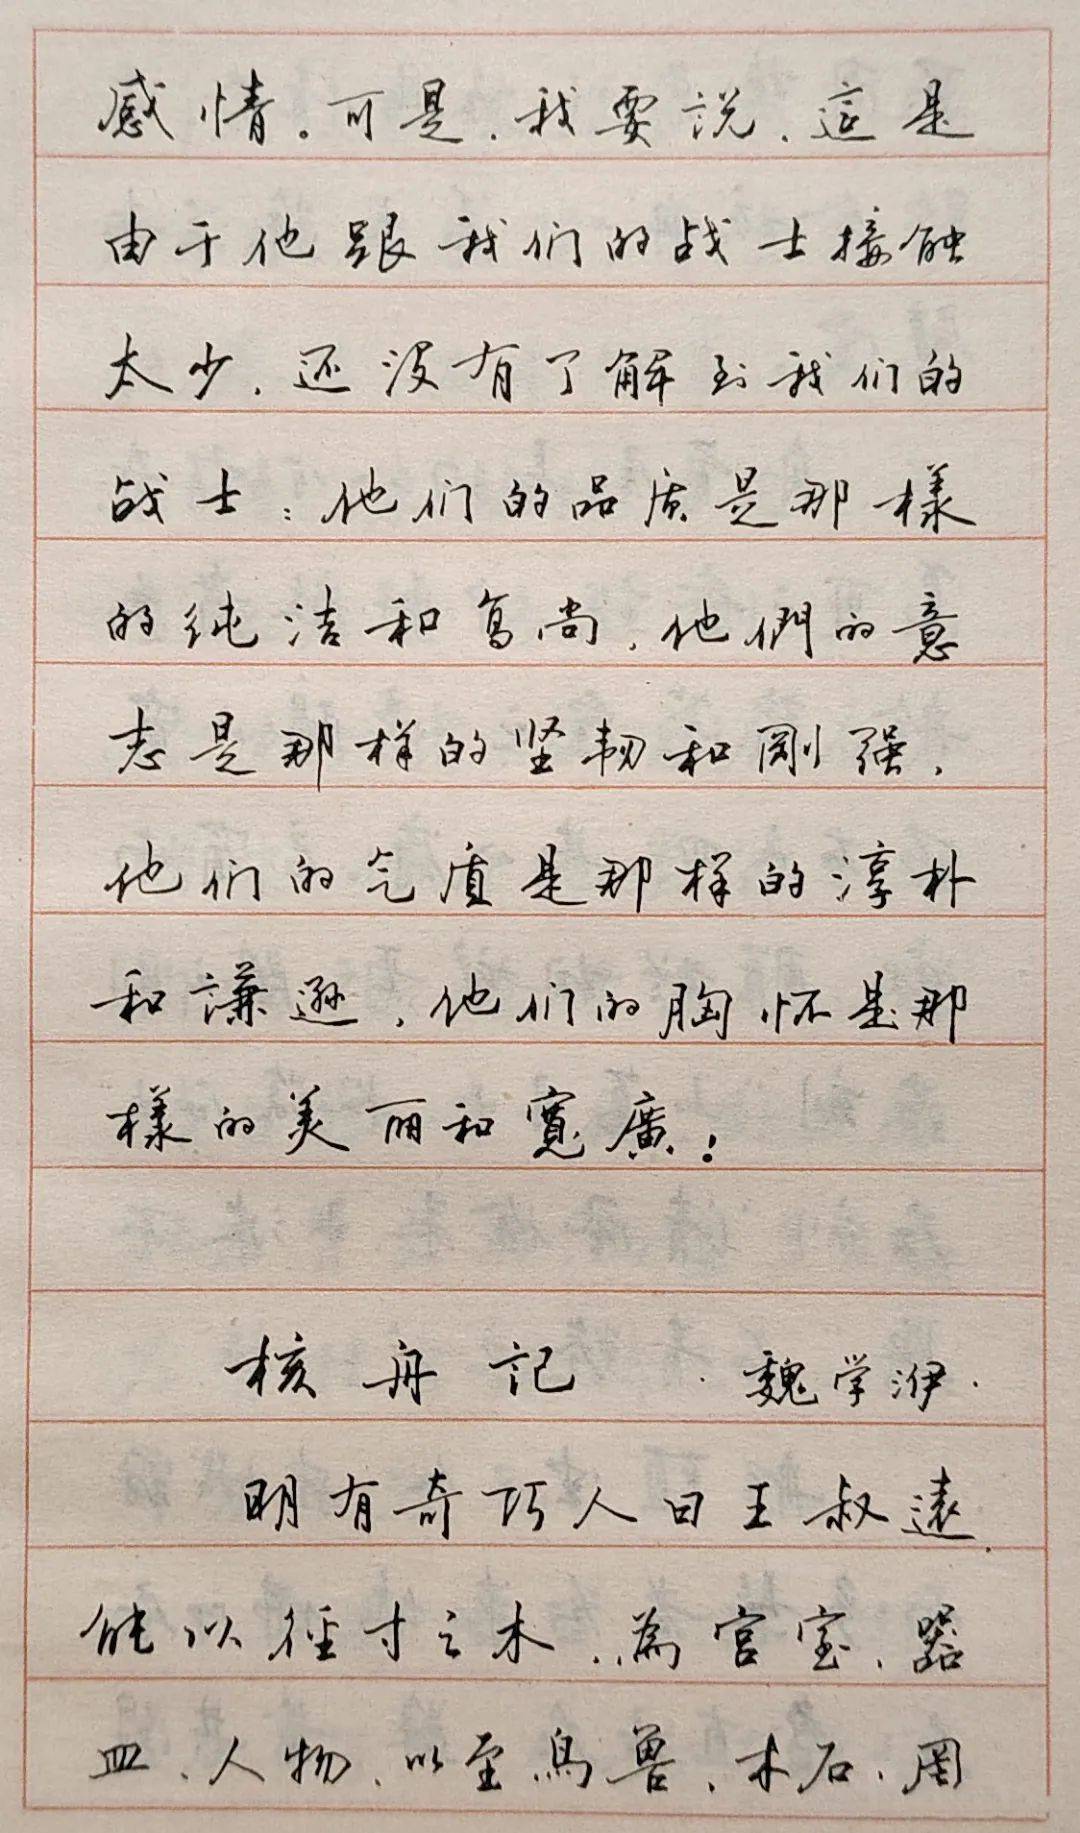 感情。可是，我要説，這是
由于他跟我们的战士接触
太少，还没有了解到我们的
战士：他们的品质是那樣
的纯洁和高尚，他們的意
志是那样的坚韧和剛强，
他们的气质是那样的淳朴
和謙遜，他们的胸怀是那
樣的美丽和寬廣！
核舟記 · 魏学洢 ·
明有奇巧人曰王叔遠，
能以徑寸之木，為宫室、器
皿、人物，以至鳥兽、木石，罔